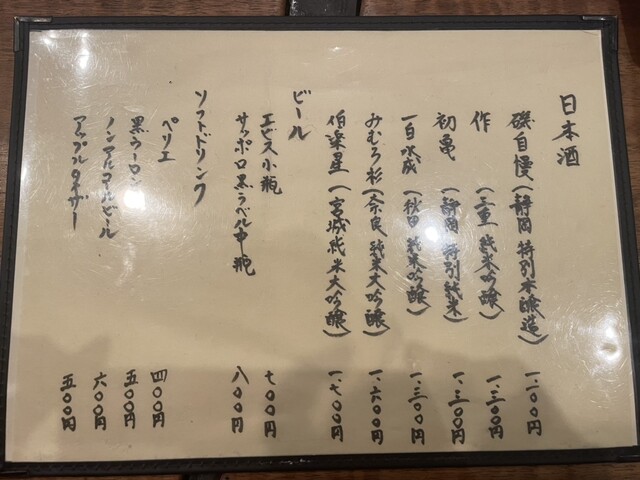 日本酒
磯自慢(静岡 特別本醸造) 一、一〇〇円
作(三重 純米吟醸) 一、三〇〇円
初亀(静岡 特別純米) 一、三〇〇円
一白水成(秋田 純米吟醸) 一、三〇〇円
みむろ杉(奈良 純米大吟醸) 一、六〇〇円
伯楽星(宮城 純米大吟醸) 一、七〇〇円
ビール
エビス小瓶 七〇〇円
サッポロ黒ラベル中瓶 八〇〇円
ソフトドリンク
ペリエ 四〇〇円
黒ウーロン 五〇〇円
ノンアルコールビール 六〇〇円
アップルタイザー 五〇〇円